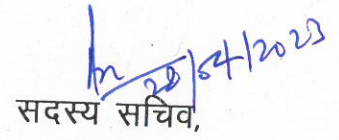 28/04/2023
सदस्य सचिव,